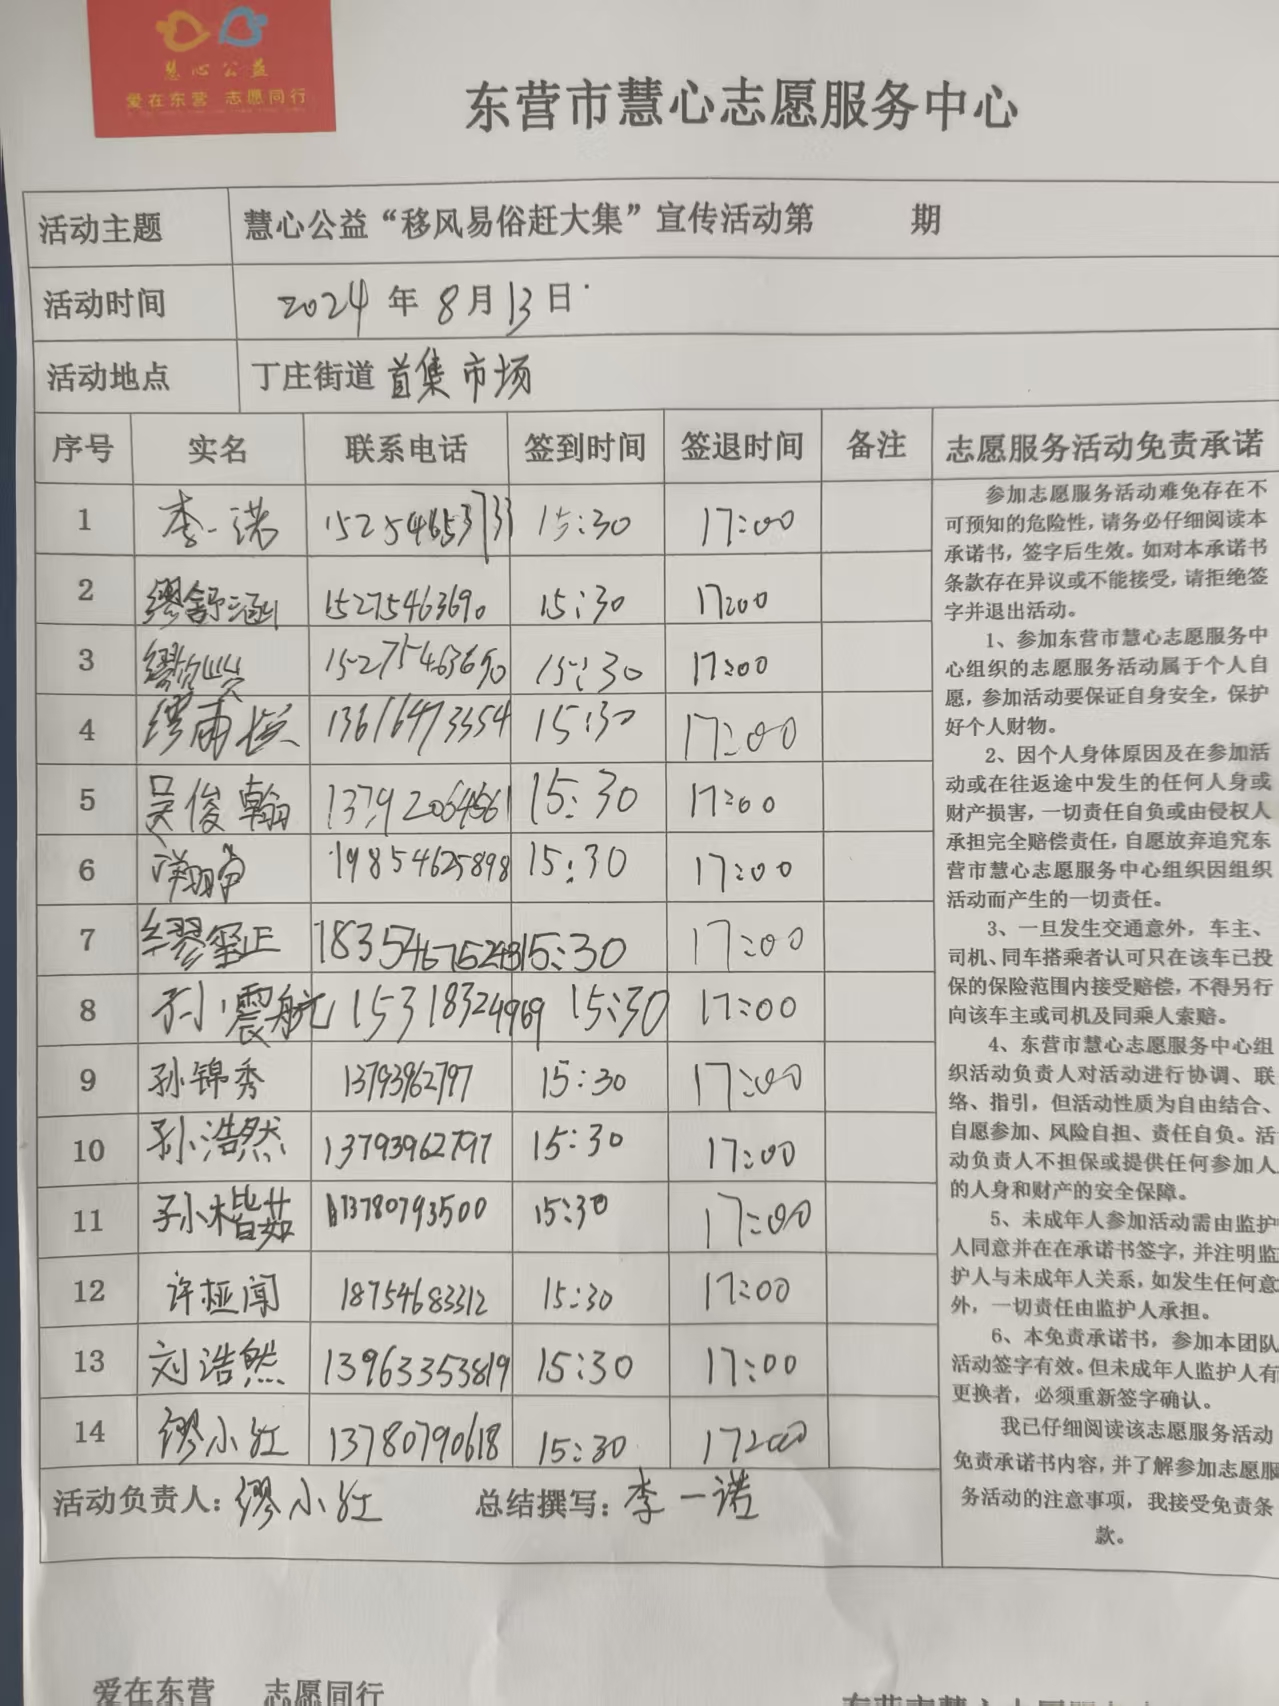 慧心公益
爱在东营 志愿同行
东营市慧心志愿服务中心
活动主题 慧心公益“移风易俗赶大集”宣传活动第 期
活动时间 2024年8月13日
活动地点 丁庄街道首集市场
序号 实名 联系电话 签到时间 签退时间 备注
1 李一诺 15254653733 15:30 17:00
2 缪舒涵 15275463690 15:30 17:00
3 缪 15275463690 15:30 17:00
4 缪雨 13616473354 15:30 17:00
5 吴俊翰 13792064561 15:30 17:00
6 19854625898 15:30 17:00
7 缪玺正 18354675243 15:30 17:00
8 孙震航 15318324969 15:30 17:00
9 孙锦秀 13793962797 15:30 17:00
10 孙浩然 13793962797 15:30 17:00
11 孙楷茹 13780793500 15:30 17:00
12 许桠闻 18754683312 15:30 17:00
13 刘浩然 13963353819 15:30 17:00
14 缪小红 13780790618 15:30 17:00
活动负责人：缪小红 总结撰写：李一诺
志愿服务活动免责承诺
参加志愿服务活动难免存在不
可预知的危险性，请务必仔细阅读本
承诺书，签字后生效。如对本承诺书
条款存在异议或不能接受，请拒绝签
字并退出活动。
1、参加东营市慧心志愿服务中
心组织的志愿服务活动属于个人自
愿，参加活动要保证自身安全，保护
好个人财物。
2、因个人身体原因及在参加活
动或在往返途中发生的任何人身或
财产损害，一切责任自负或由侵权人
承担完全赔偿责任，自愿放弃追究东
营市慧心志愿服务中心组织因组织
活动而产生的一切责任。
3、一旦发生交通意外，车主、
司机、同车搭乘者认可只在该车已投
保的保险范围内接受赔偿，不得另行
向该车主或司机及同乘人索赔。
4、东营市慧心志愿服务中心组
织活动负责人对活动进行协调、联
络、指引，但活动性质为自由结合、
自愿参加、风险自担、责任自负。活
动负责人不担保或提供任何参加人
的人身和财产的安全保障。
5、未成年人参加活动需由监护
人同意并在在承诺书签字，并注明监
护人与未成年人关系，如发生任何意
外，一切责任由监护人承担。
6、本免责承诺书，参加本团队
活动签字有效。但未成年人监护人有
更换者，必须重新签字确认。
我已仔细阅读该志愿服务活动
免责承诺书内容，并了解参加志愿服
务活动的注意事项，我接受免责条
款。
爱在东营 志愿同行
东营市慧心志愿服务中心